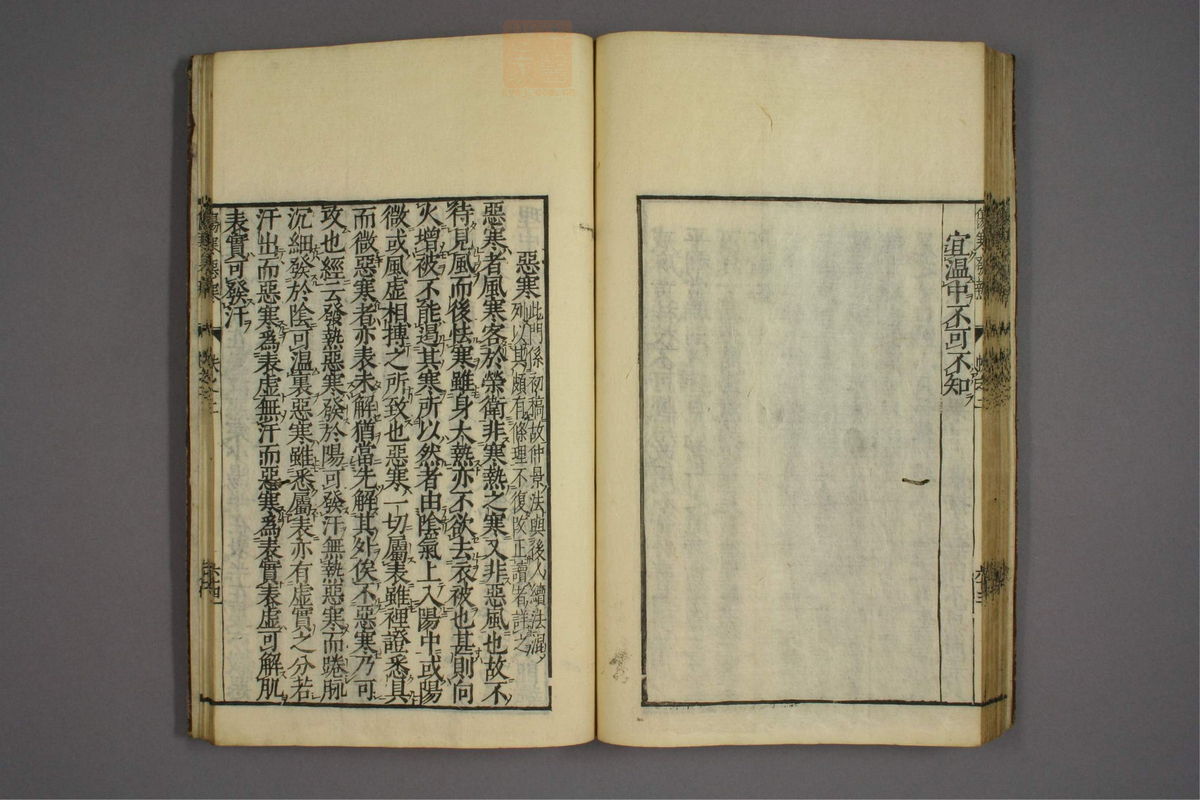 宜温中不可不知
惡寒
此門係初稿故仲景法與後人續法混
列以其頗有條理不復改正讀者詳之
惡寒者風寒客於榮衛非寒熱之寒又非惡風也故不
待見風而後怯寒雖身大熱亦不欲去衣被也甚則向
火增被不能遏其寒所以然者由陰氣上入陽中或陽
微或風虛相搏之所致也惡寒一切屬表雖裡證悉具
而微惡寒者亦表未解猶當先解其外俟不惡寒乃可
攻也經云發熱惡寒發於陽可發汗無熱惡寒而踡脈
沉細發於陰可温裏惡寒雖悉屬表亦有虛實之分若
汗出而惡寒爲表虛無汗而惡寒爲表實表虛可解肌
表實可發汗